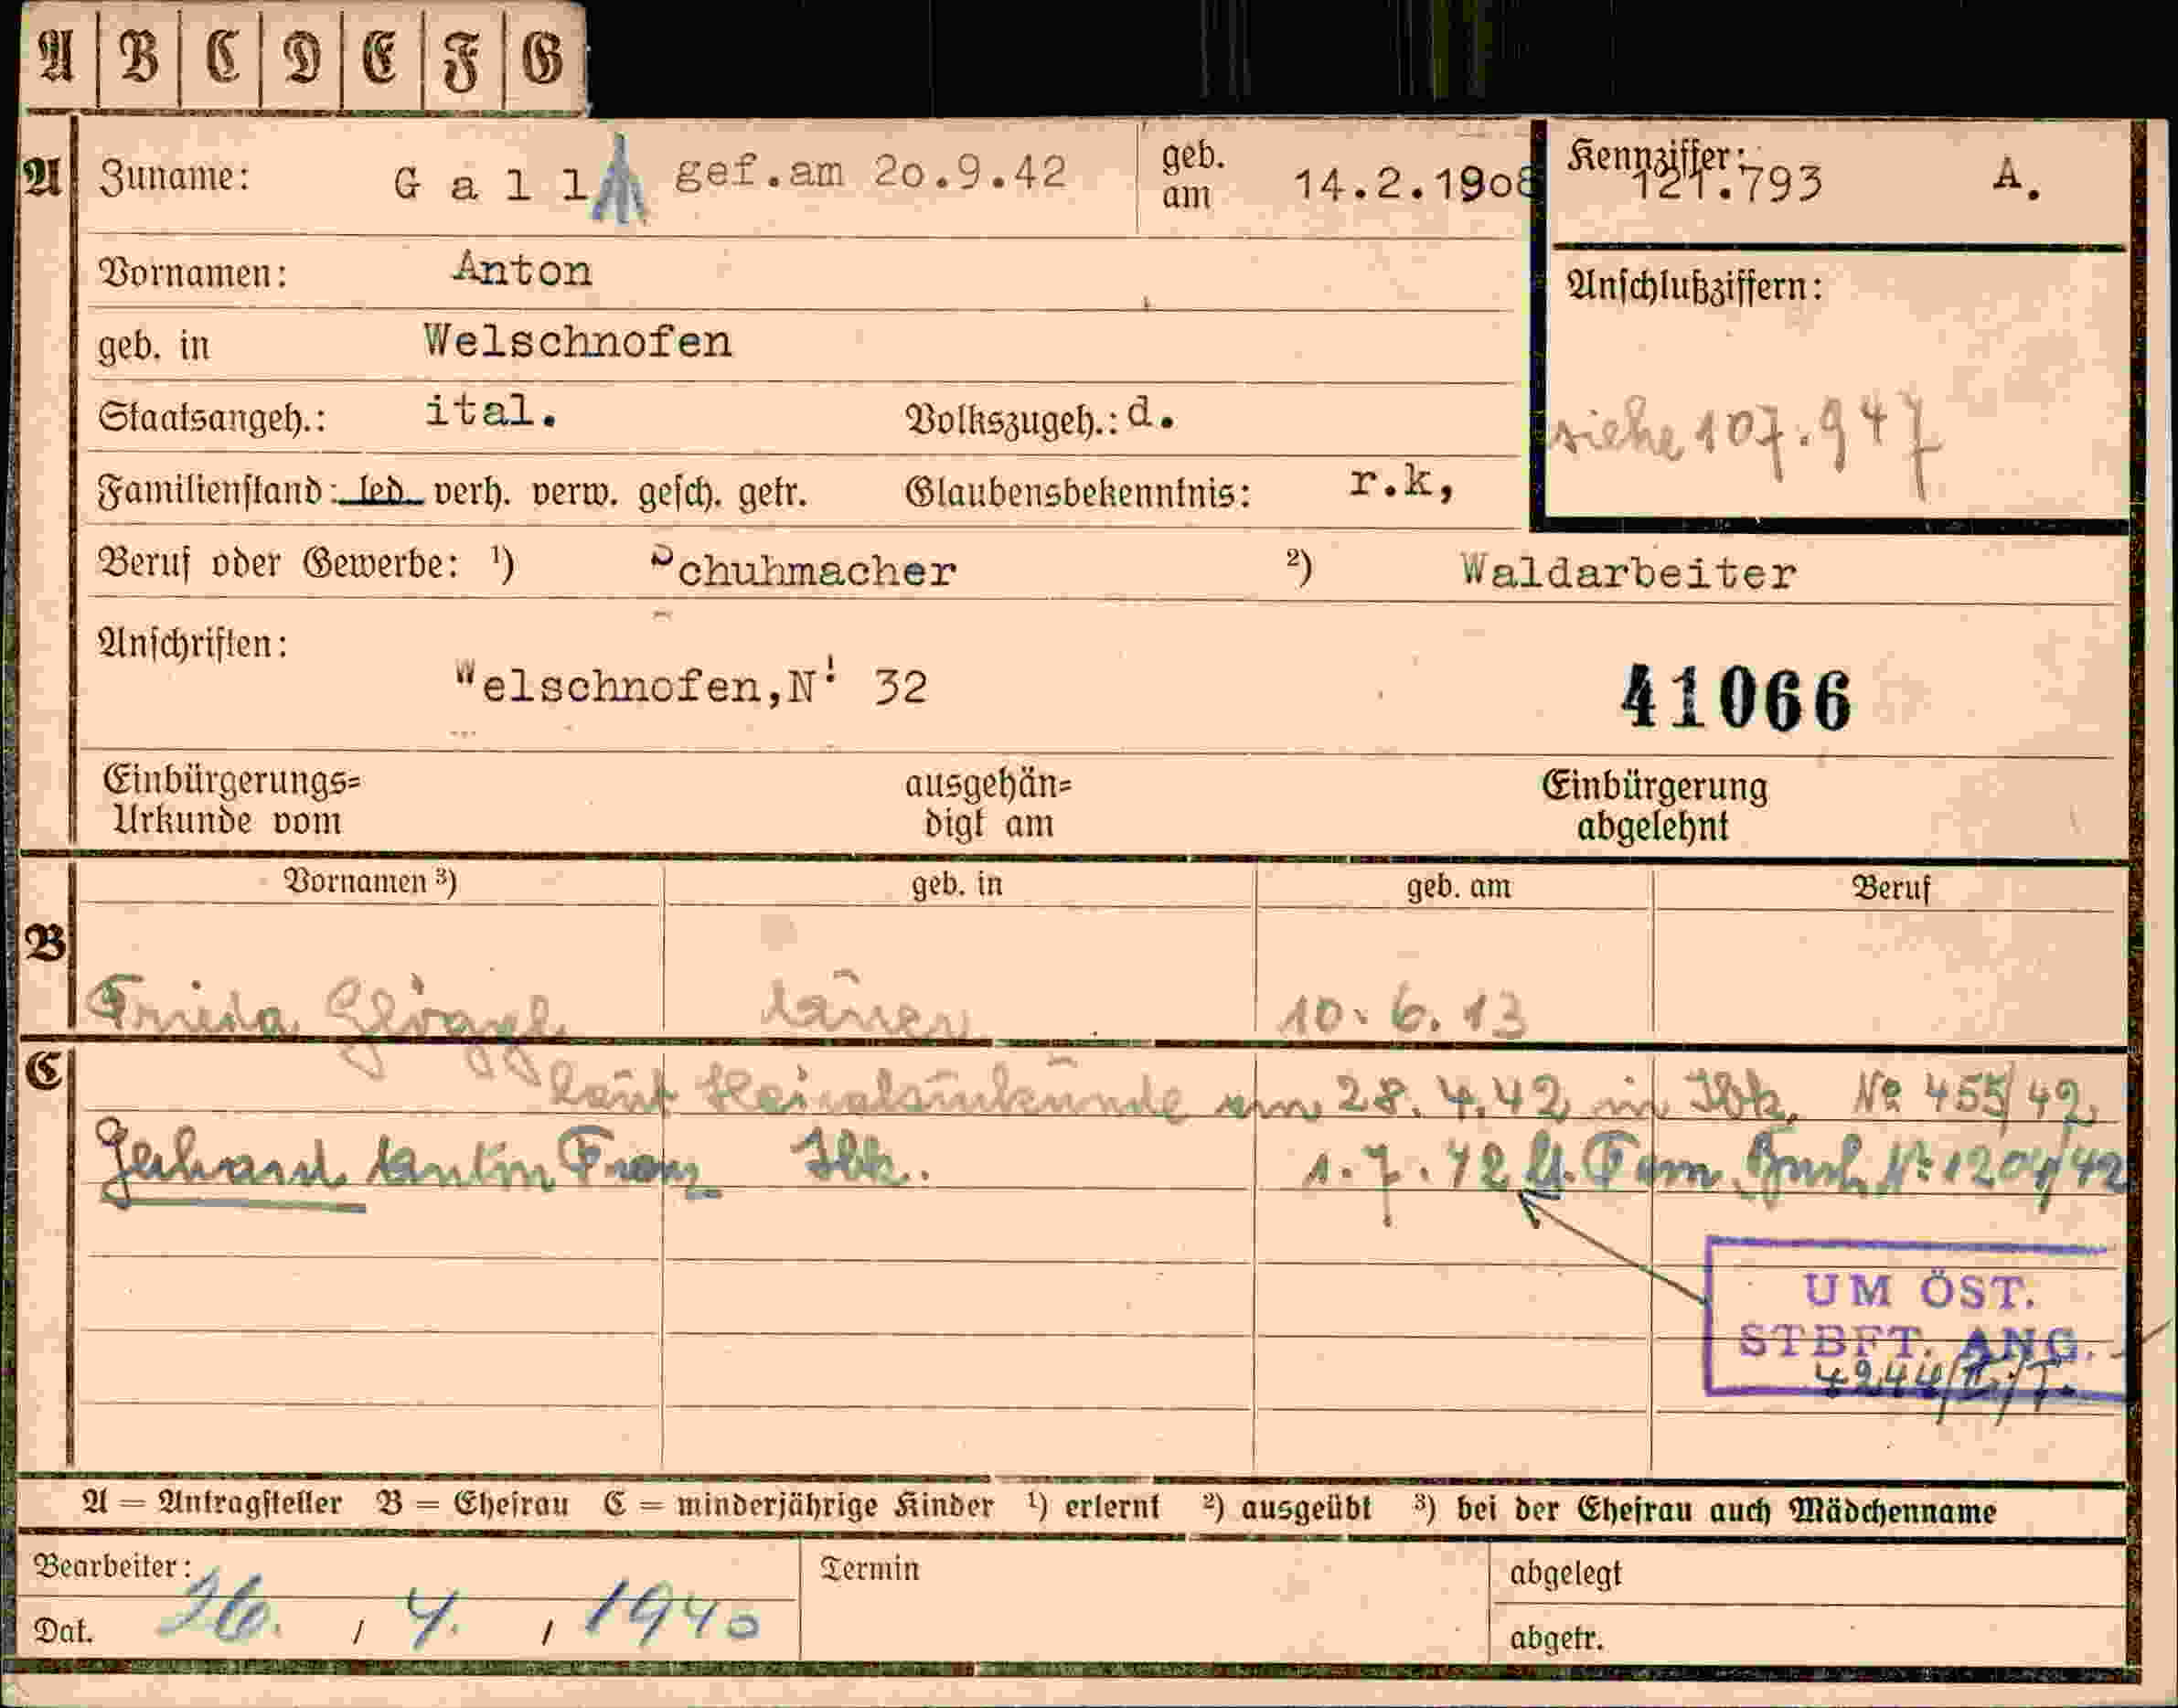 A B C D E F G
A Zuname: Gall gef.am 20.9.42 geb. am 14.2.1908 Kennziffer: 121.793 A.
Vornamen: Anton
Anschlußziffern:
geb. in Welschnofen
siehe 107.947
Staatsangeh.: ital. Volkszugeh.: d.
Familienstand: led. verh. verw. gesch. getr. Glaubensbekenntnis: r.k,
Beruf oder Gewerbe: ¹) Schuhmacher ²) Waldarbeiter
Anschriften:
Welschnofen, N! 32
41066
Einbürgerungs= Urkunde vom ausgehän= digt am Einbürgerung abgelehnt
Vornamen ³) geb. in geb. am Beruf
B
Frieda Glöggl 10. 6. 13
C
laut Heiratsurkunde am 28. 4. 42 in Ibk. No 455/42
Gerhard Anton Franz Ibk. 1. 7. 42 lt. Fam. Buch Nr. 1204/42
UM ÖST.
STBFT. ANG.
4244/II/T.
A = Antragsteller B = Ehefrau C = minderjährige Kinder ¹) erlernt ²) ausgeübt ³) bei der Ehefrau auch Mädchenname
Bearbeiter: Termin abgelegt
Dat. 26. / 4. / 1940 abgetr.